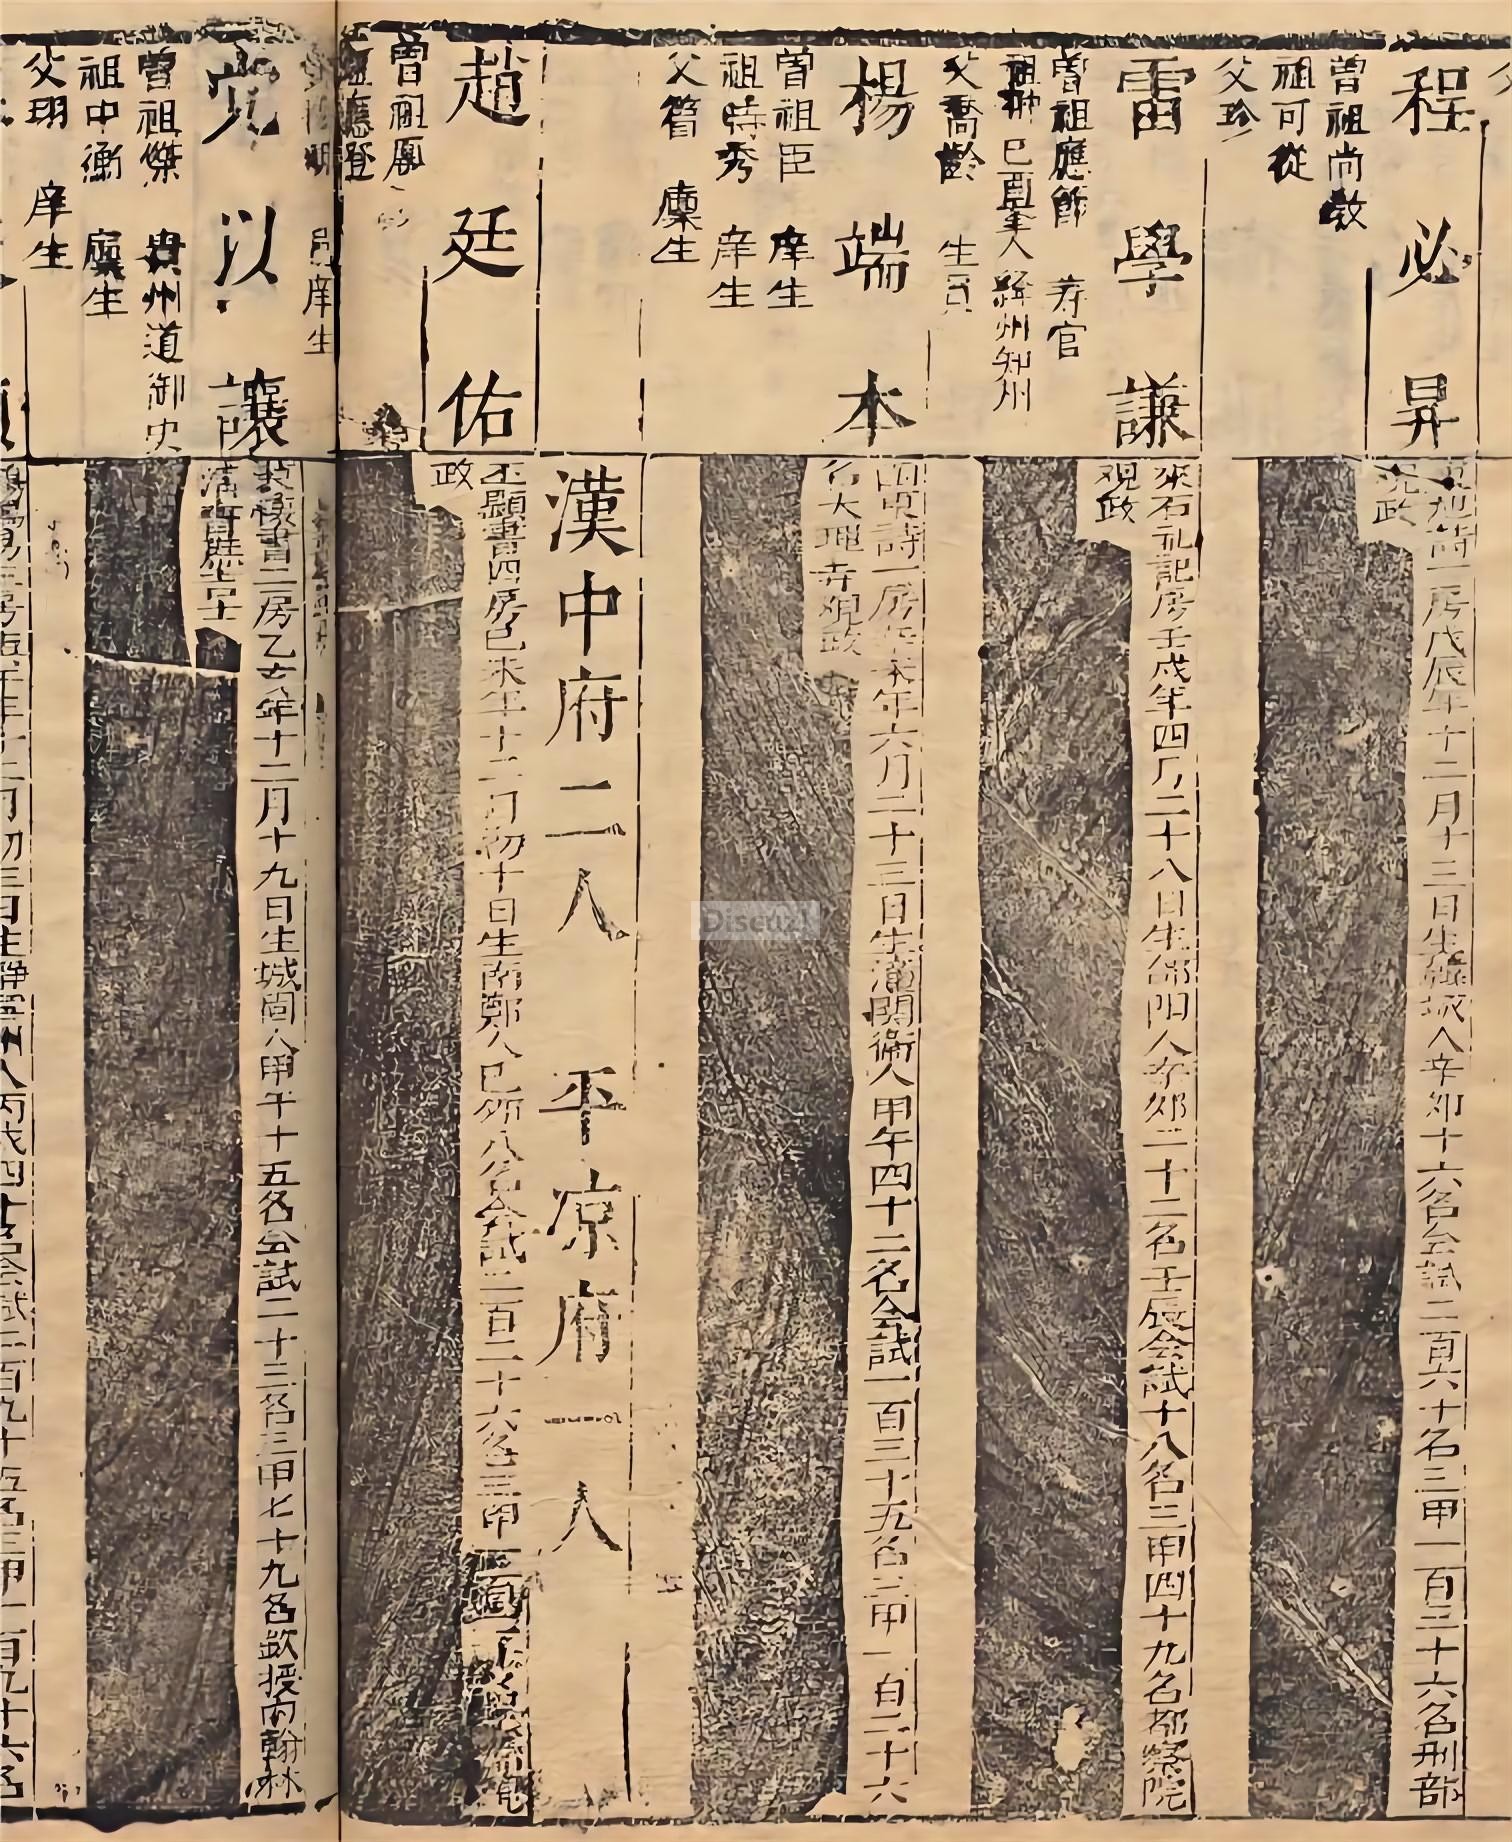 程必昇
曾祖尚教
祖可從
父珍
旭詩一房戊辰年十二月十三日生 城人辛卯十六名会試二百六十名三甲一百三十六名刑部
政
雷學謙
曾祖應節 寿官
祖翀 已酉 人 絳州知州
父喬齡 生員
來石礼記房壬戌年四月二十八日生郃阳人辛夘二十二名壬辰会試十八名三甲四十九名都察院
观政
楊端本
曾祖臣 庠生
祖時秀 庠生
父管 廪生
詩一房 年六月二十三日生潼関衛人甲午四十二名会試一百三十九名三甲一百二十六
名大理寺观政
漢中府二人 平凉府一人
趙廷佑
曾祖鳳
應登
邑庠生
丕顯書四房已未年十二月初十日生南鄭人已 八名会試二百二十六名三甲
政
党以讓
曾祖傑 貴州道御史
祖中衡 廪生
父珝 庠生
書二房乙 年十二月十九日生城固人甲午十五名会試二十三名三甲七十九名欽授内翰林
清書庶吉士
年十二月初三日生静寧州人丙戌四十名会試二百九十五名三甲一百九十六名
Discuz!